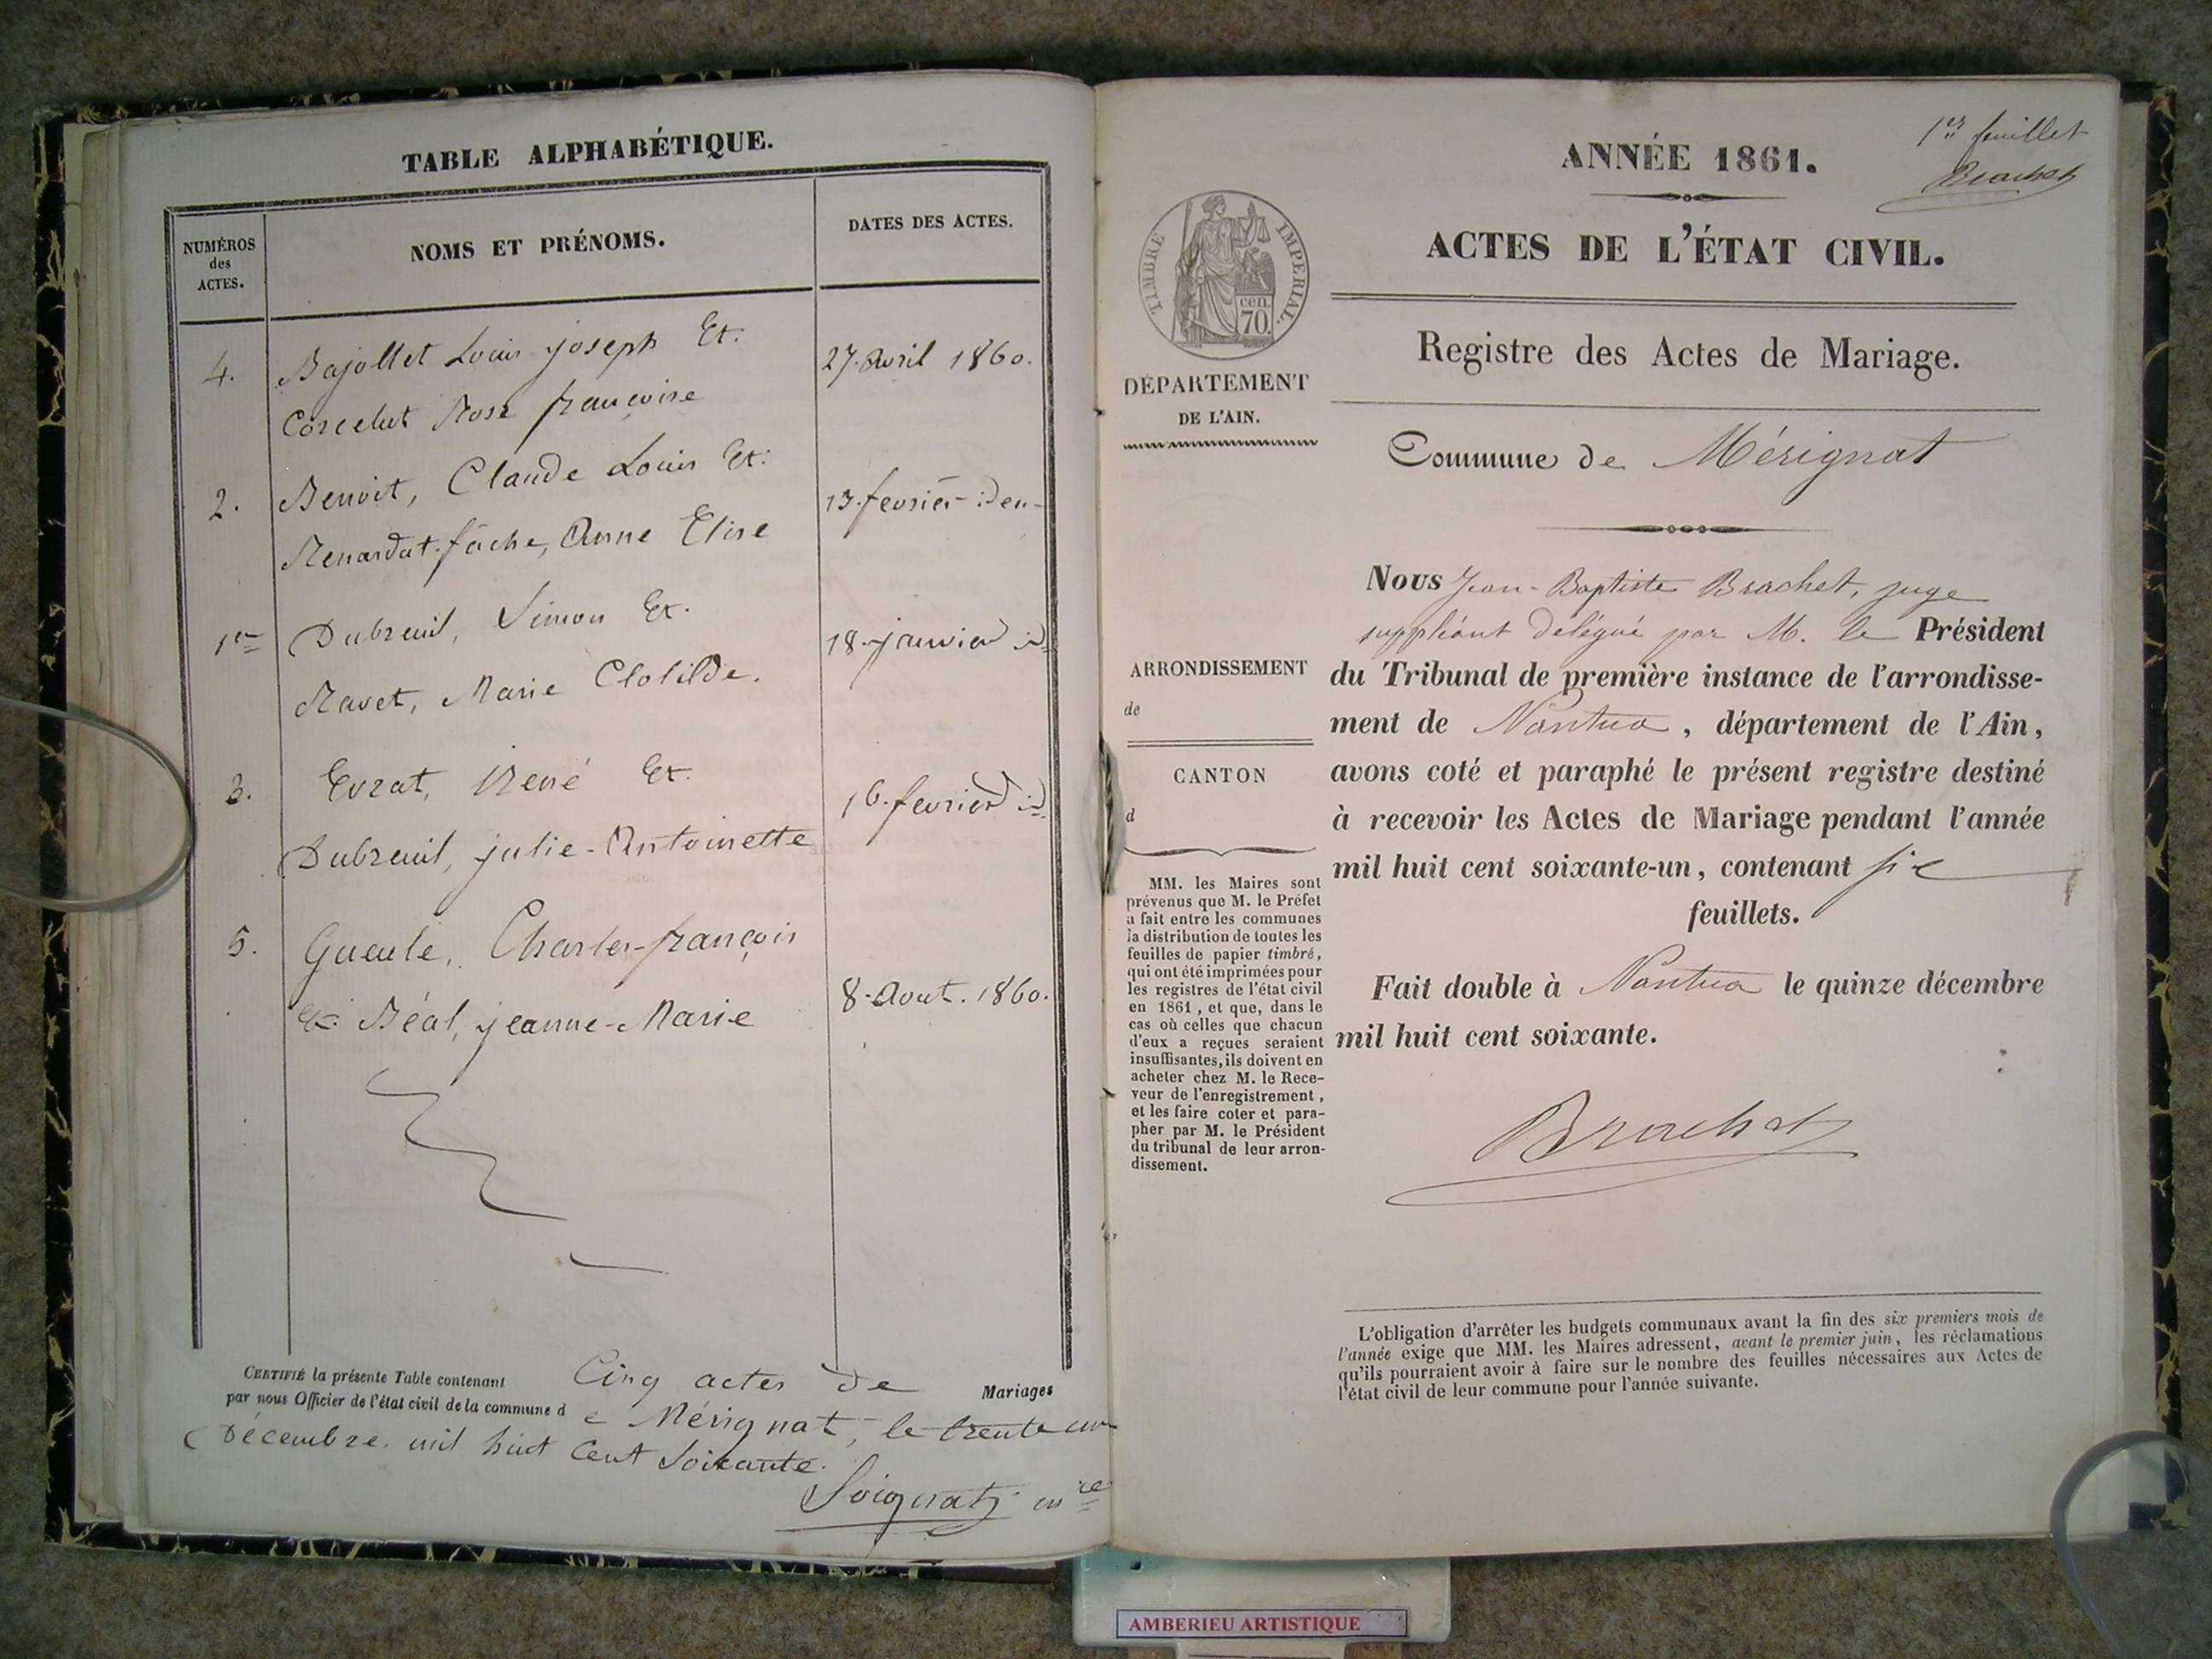 TABLE ALPHABÉTIQUE.
NUMÉROS
des
ACTES.
NOMS ET PRÉNOMS.
DATES DES ACTES.
4. Bajollet Louis-joseph Et. 27. avril 1860.
Corcelut Rose françoise
2. Benoit, Claude Louis Et. 13. fevrier
Renardat-fâche, Anne Elise
1er Dubreuil, Simon Et. 18. janvier id
Ravet, Marie Clotilde.
3. Evrat, René Et. 16. fevrier id
Dubreuil, julie-Antoinette
5. Gueule, Charles-françois
Et Béal, jeanne-Marie 8. Aout. 1860.
CERTIFIÉ la présente Table contenant Cinq actes de Mariages
par nous Officier de l'état civil de la commune d e Mérignat, le trente un
Décembre mil huit Cent Soixante.
Soignat
1er feuillet
Brachet
ANNÉE 1861.
ACTES DE L'ÉTAT CIVIL.
TIMBRE IMPERIAL.
cen.
70.
Registre des Actes de Mariage.
DÉPARTEMENT
DE L'AIN.
Commune de Mérignat
Nous Jean-Baptiste Brachet, juge
suppléant délégué par M. le Président
ARRONDISSEMENT
de
du Tribunal de première instance de l'arrondisse-
ment de Nantua, département de l'Ain,
CANTON
d
avons coté et paraphé le présent registre destiné
à recevoir les Actes de Mariage pendant l'année
mil huit cent soixante-un, contenant six
feuillets.
MM. les Maires sont
prévenus que M. le Préfet
a fait entre les communes
la distribution de toutes les
feuilles de papier timbré,
qui ont été imprimées pour
les registres de l'état civil
en 1861, et que, dans le
cas où celles que chacun
d'eux a reçues seraient
insuffisantes, ils doivent en
acheter chez M. le Rece-
veur de l'enregistrement,
et les faire coter et para-
pher par M. le Président
du tribunal de leur arron-
dissement.
Fait double à Nantua le quinze décembre
mil huit cent soixante.
Brachet
L'obligation d'arrêter les budgets communaux avant la fin des six premiers mois de
l'année exige que MM. les Maires adressent, avant le premier juin, les réclamations
qu'ils pourraient avoir à faire sur le nombre des feuilles nécessaires aux Actes de
l'état civil de leur commune pour l'année suivante.
AMBERIEU ARTISTIQUE